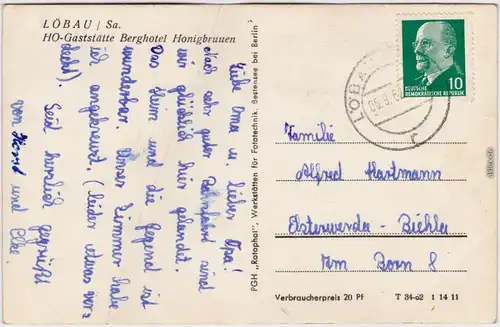 LÖBAU / Sa.
HO-Gaststätte Berghotel Honigbrunnen
Liebe Oma u. lieber Opa!
Nach sehr guter Bahnfahrt sind
wir glücklich hier gelandet.
Das Heim und die Gegend ist
wunderbar. Unser Zimmer habe
ich angekreuzt. (leider etwas ver-
deckt). Seid herzlich gegrüßt
von Horst und Elke.
PGH „Rotophot", Werkstätten für Fototechnik, Bestensee bei Berlin
DEUTSCHE
DEMOKRATISCHE REPUBLIK
10
LÖBAU
r
Familie
Alfred Hartmann
Elsterwerda-Biehla
Am Born 8
Verbraucherpreis 20 Pf T 34-62 1 14 11